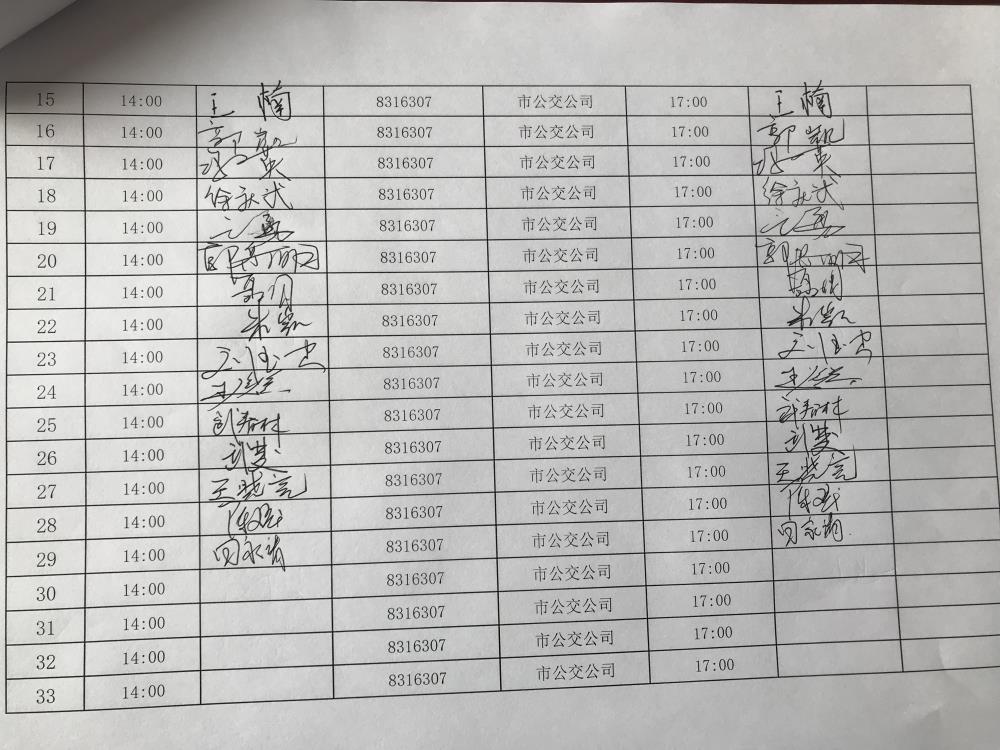 15 14:00 王楠 8316307 市公交公司 17:00 王楠
16 14:00 郭凯 8316307 市公交公司 17:00 郭凯
17 14:00 8316307 市公交公司 17:00
18 14:00 徐永武 8316307 市公交公司 17:00 徐永武
19 14:00 8316307 市公交公司 17:00
20 14:00 8316307 市公交公司 17:00
21 14:00 8316307 市公交公司 17:00
22 14:00 朱凯 8316307 市公交公司 17:00 朱凯
23 14:00 8316307 市公交公司 17:00
24 14:00 8316307 市公交公司 17:00
25 14:00 8316307 市公交公司 17:00
26 14:00 8316307 市公交公司 17:00
27 14:00 王晓亮 8316307 市公交公司 17:00 王晓亮
28 14:00 8316307 市公交公司 17:00
29 14:00 8316307 市公交公司 17:00
30 14:00 8316307 市公交公司 17:00
31 14:00 8316307 市公交公司 17:00
32 14:00 8316307 市公交公司 17:00
33 14:00 8316307 市公交公司 17:00